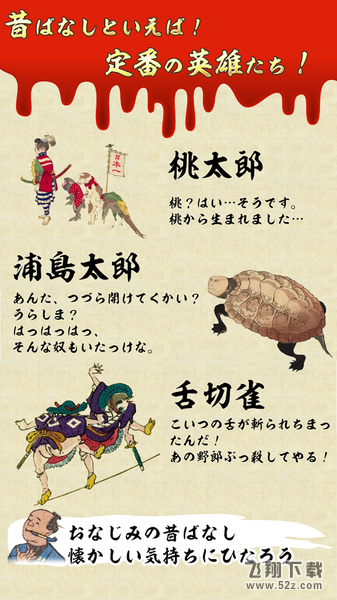 昔ばなしといえば！
定番の英雄たち！
日本一
桃太郎
桃？はい…そうです。
桃から生まれました…
浦島太郎
あんた、つづら開けてくかい？
うらしま？
はっはっはっ、
そんな奴もいたっけな。
舌切雀
こいつの舌が斬られちまっ
たんだ！
あの野郎ぶっ殺してやる！
おなじみの昔ばなし
懐かしい気持ちにひたろう
飞翔下载
www.52z.com